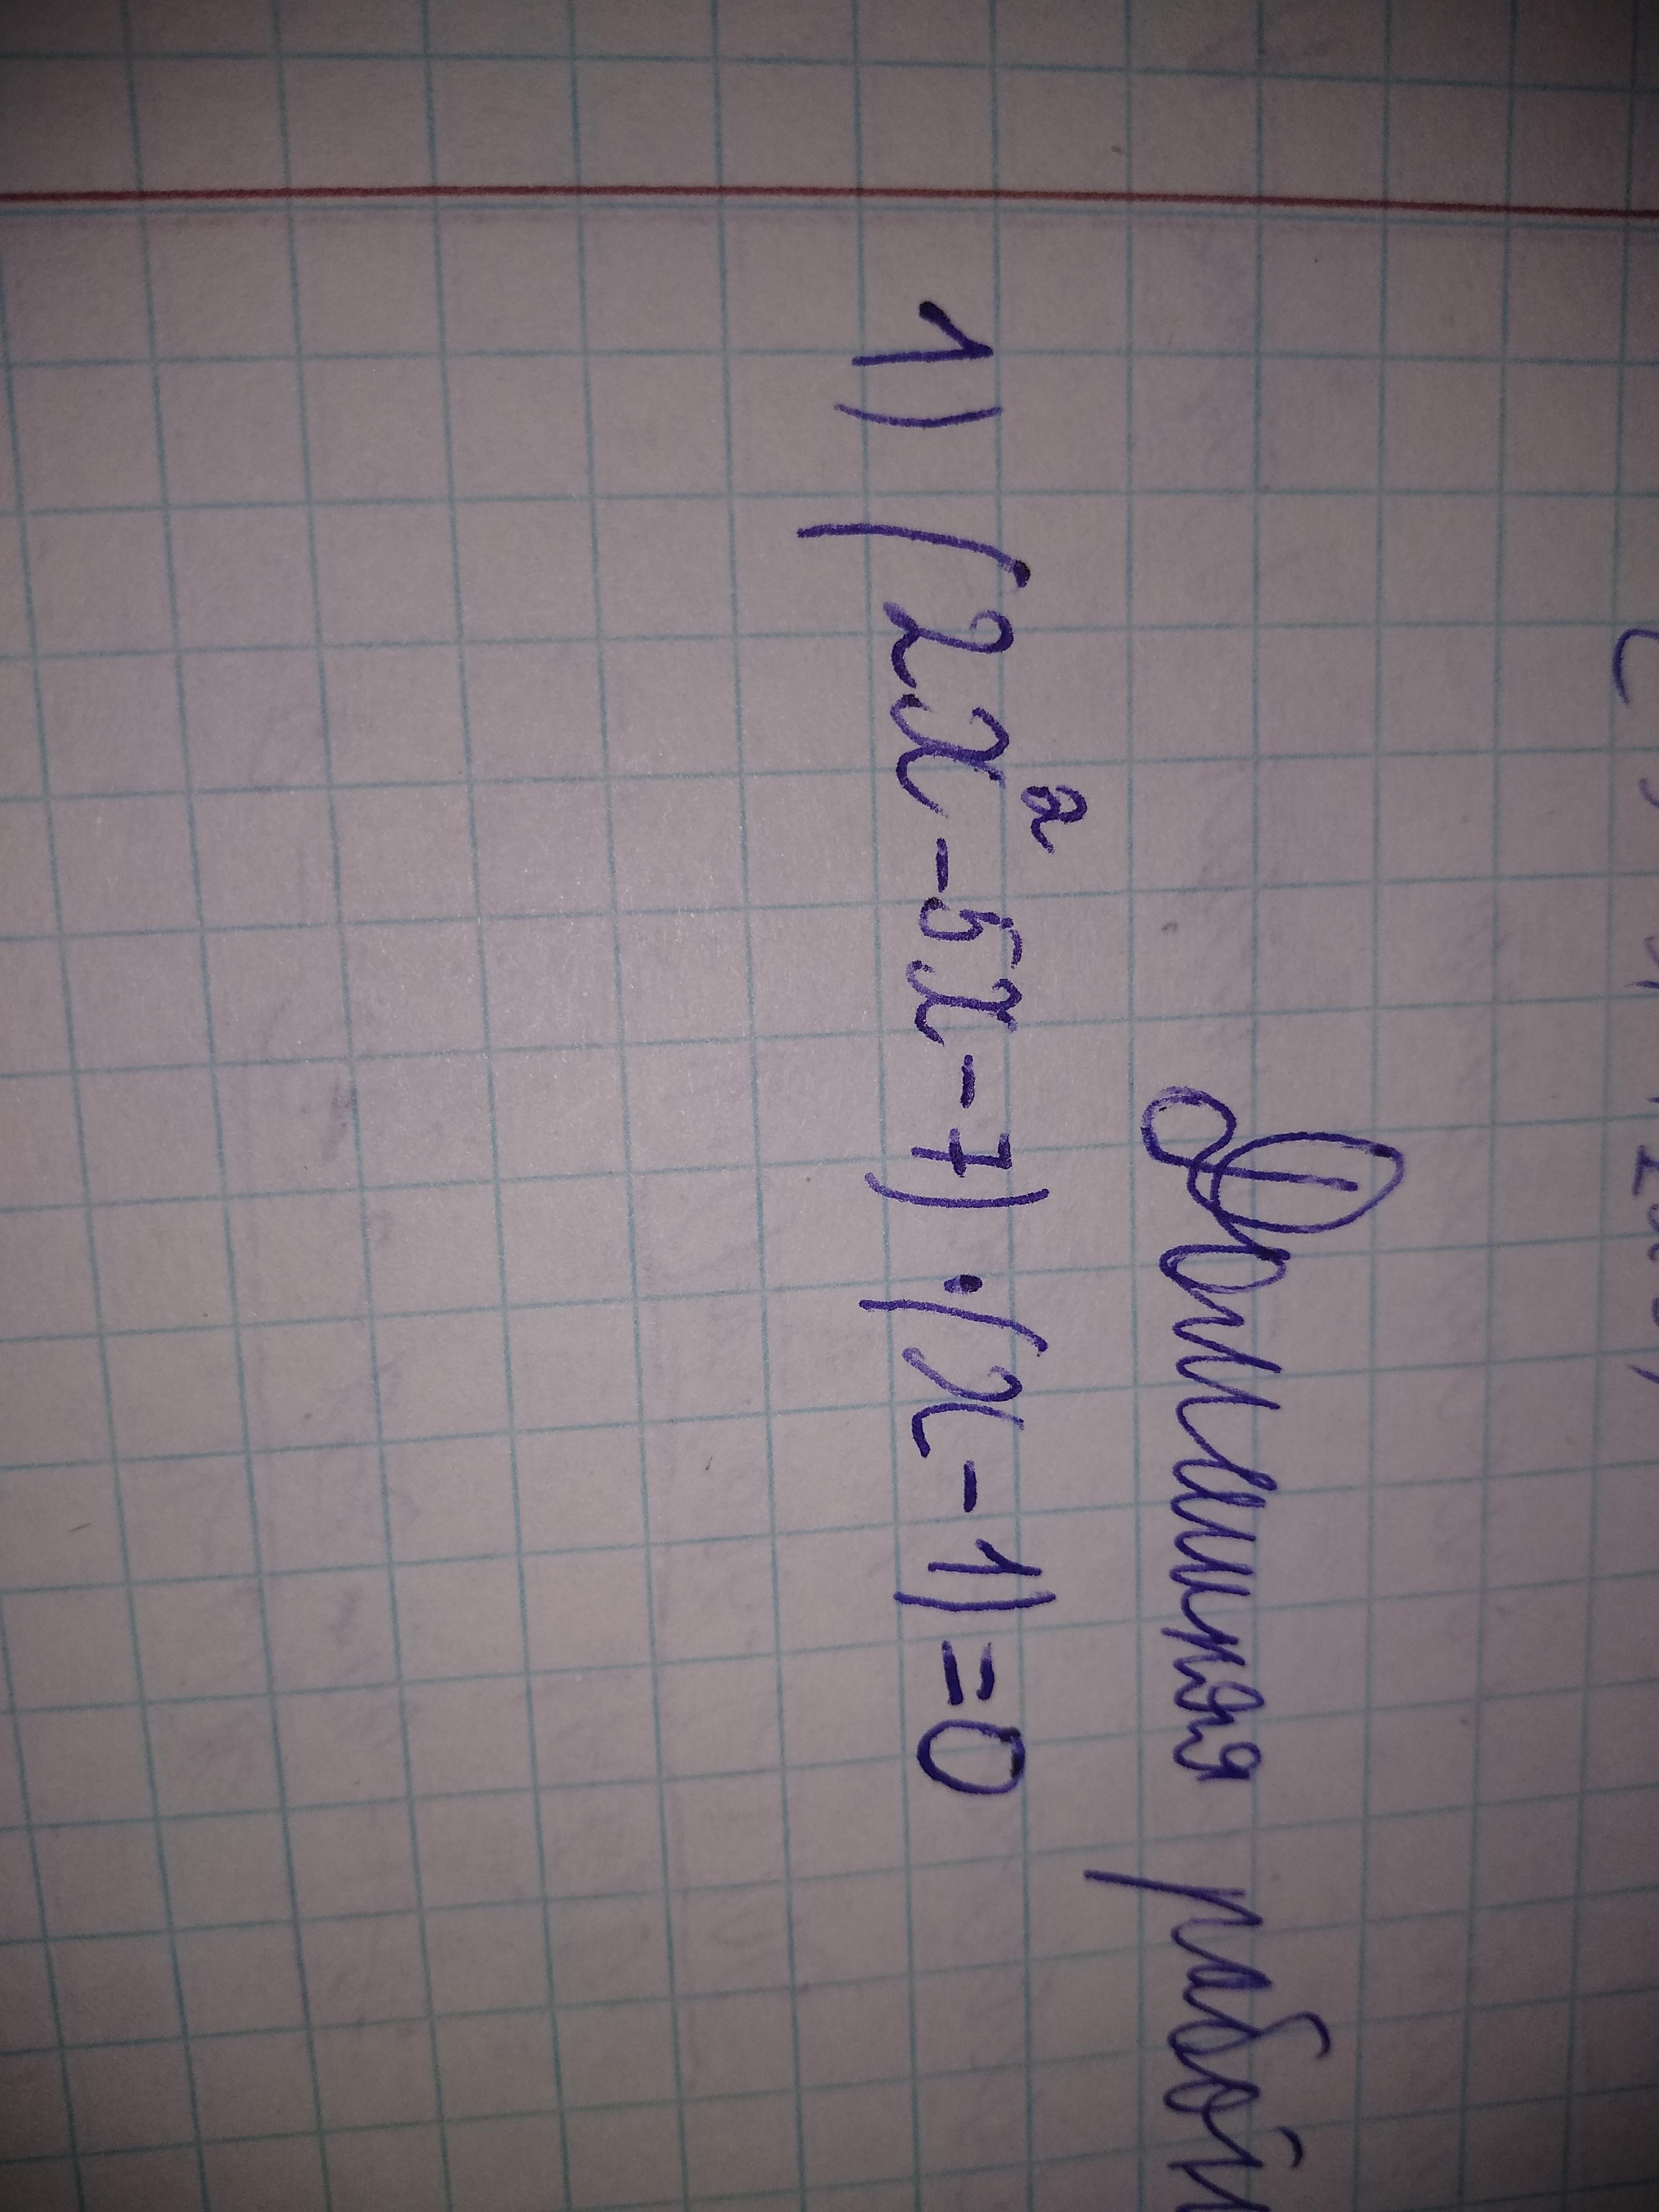 Домашняя работ
1) (2x²-5x-7)·(x-1)=0